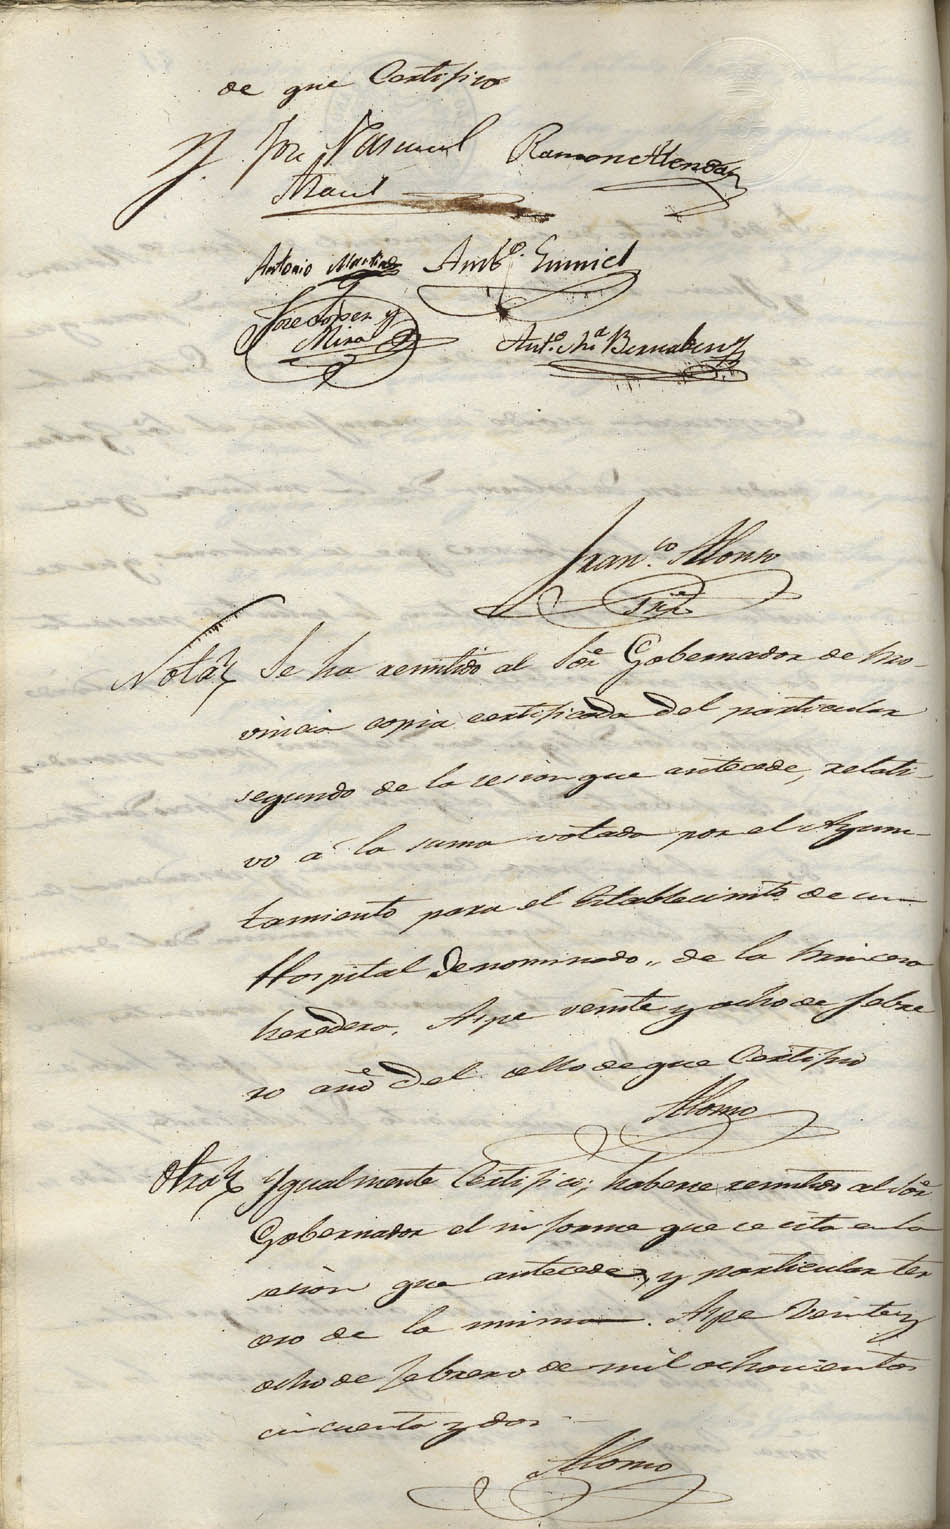 de que Certifico
José Pascual Ramon Alenda
Antonio Martinez Ambº. Gumiel
Jose Lopez y
Mira Antº. Mª Bernabeu
Franco. Alonso
Srio
Nota Se ha remitido al Sor Gobernador de Pro-
vincia copia certificada del particular
segundo de la sesion que antecede, relati-
vo a la suma votada por el Ayun-
tamiento para el Establecimto. de un
Hospital denominado „ de la Princesa
heredera. Aspe veinte y ocho de febre
ro año del sello de que Certifico
Alonso
Otra Ygualmente Certifico; haberse remitido al Sor
Gobernador el informe que se cita en la
sesion que antecede, y particular ter
cero de la misma. Aspe Veinte y
ocho de febrero de mil ochocientos
cincuenta y dos
Alonso